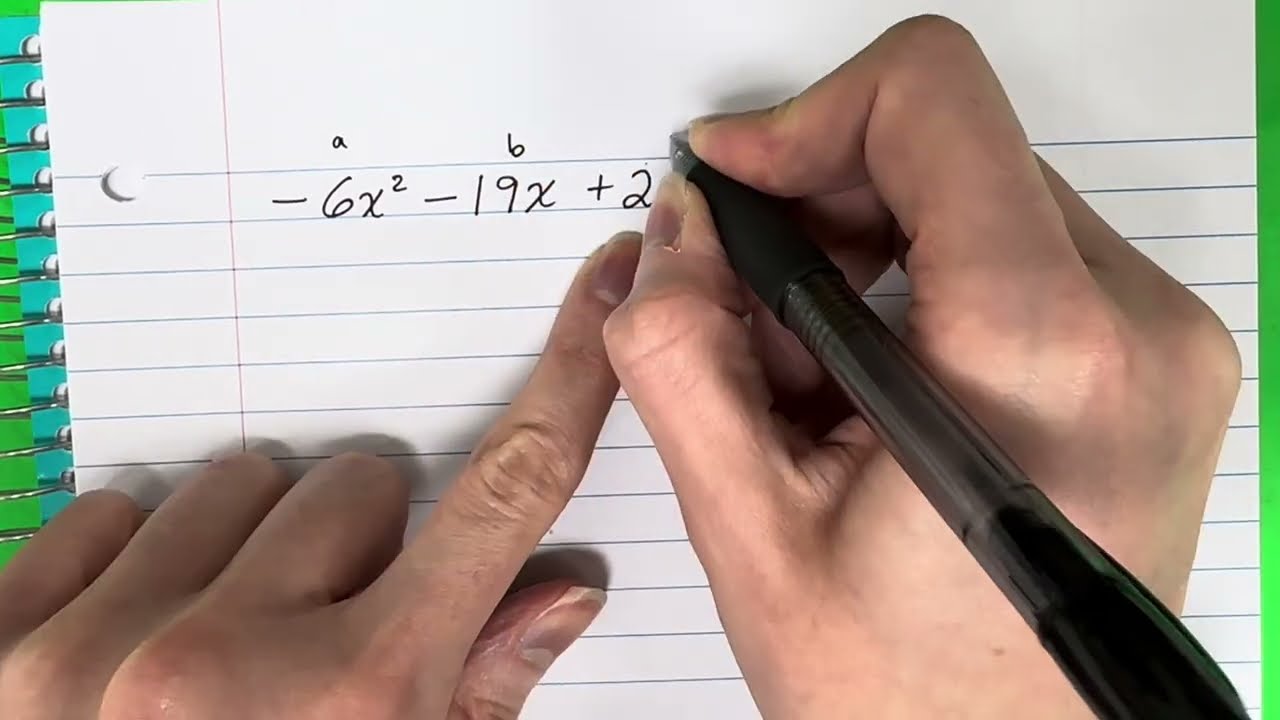 a b
- 6x² - 19x + 2